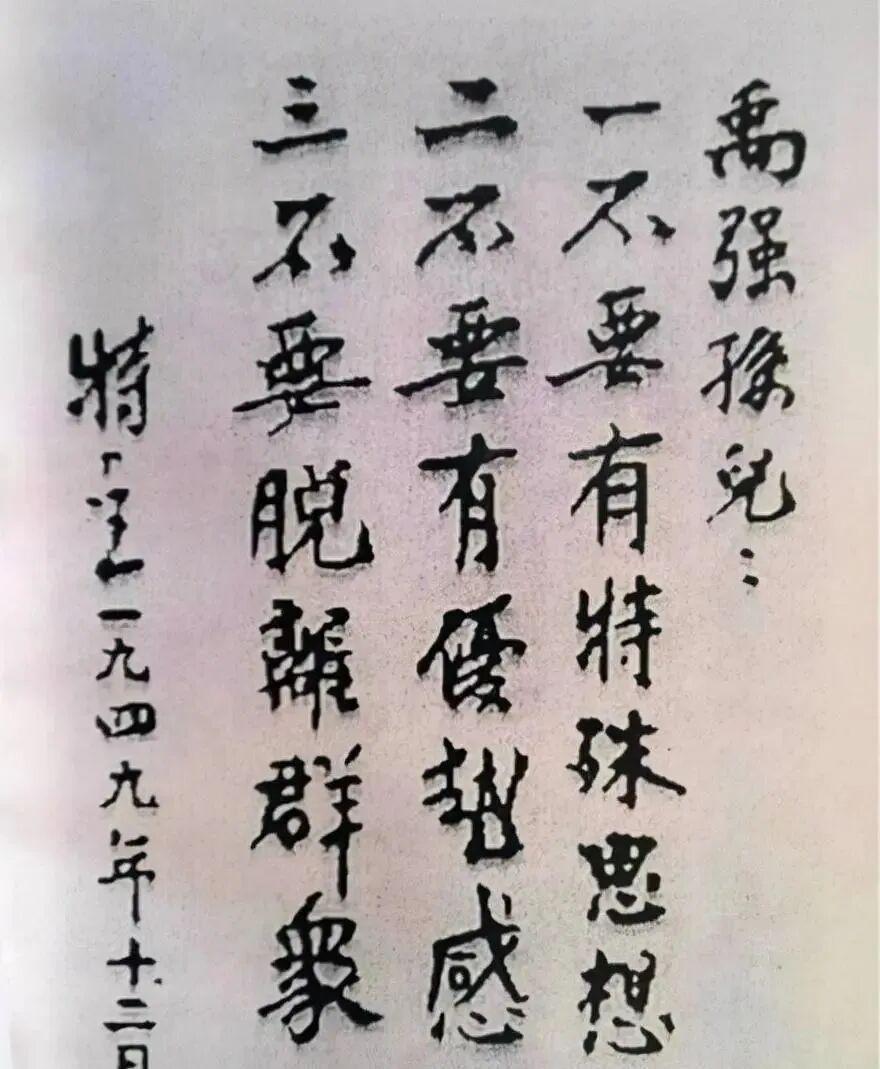 禹强孫兒：
一不要有特殊思想
二不要有優勢感
三不要脫離群衆
特 一九四九年十二日